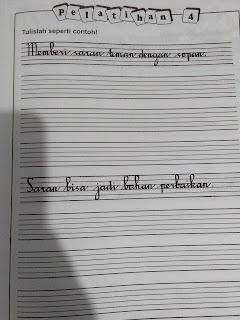 Pelatihan 4
Tulislah seperti contoh!
Memberi saran teman dengan sopan.
Saran bisa jadi bahan perbaikan.